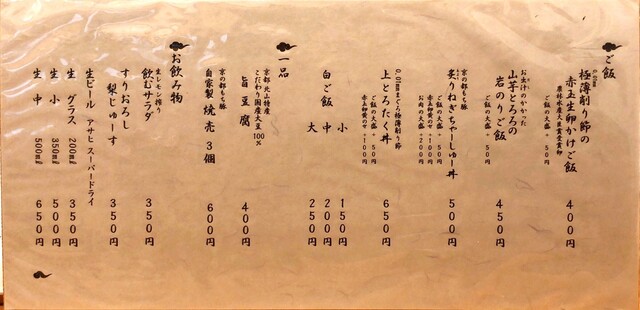 ご飯
0.01mm
極薄削り節の
赤玉生卵かけご飯
農林水産大臣賞受賞卵
ご飯の大盛 + 50円
400円
お出汁のかかった
山芋とろろの
岩のりご飯
ご飯の大盛 + 50円
450円
京の都もち豚
炙りねぎちゃーしゅー丼
ご飯の大盛 + 50円
赤玉卵黄のせ +100円
お肉の大盛 +200円
500円
0.01mmまぐろ極薄削り節
上とろたく丼
ご飯の大盛 + 50円
赤玉卵黄のせ +100円
650円
白ご飯
小 150円
中 200円
大 250円
一品
京都 北山特産
こだわり国産大豆100%
旨豆腐 400円
京の都もち豚
自家製 焼売 3個 600円
お飲み物
生レモン搾り
飲むサラダ 350円
すりおろし
梨じゅーす 350円
生ビール アサヒ スーパードライ
生 グラス 200ml 350円
生 小 350ml 500円
生 中 500ml 650円